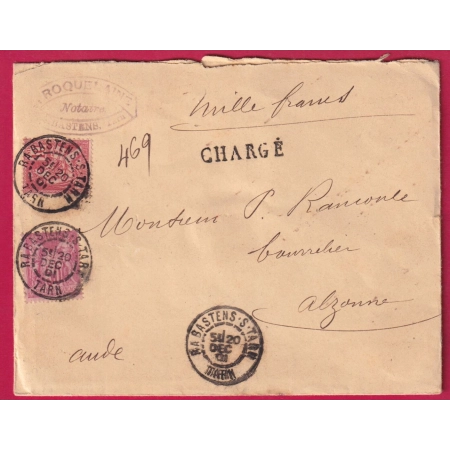 ROQUELAINE
Notaire
RABASTENS, TARN
Mille francs
469
CHARGÉ
RABASTENS-S-TARN
5E/20
DEC
01
TARN
RABASTENS-S-TARN
5E/20
DEC
01
TARN
Monsieur P. Ramonle
bourrelier
Alzonne
RABASTENS-S-TARN
5E/20
DEC
01
TARN
aude